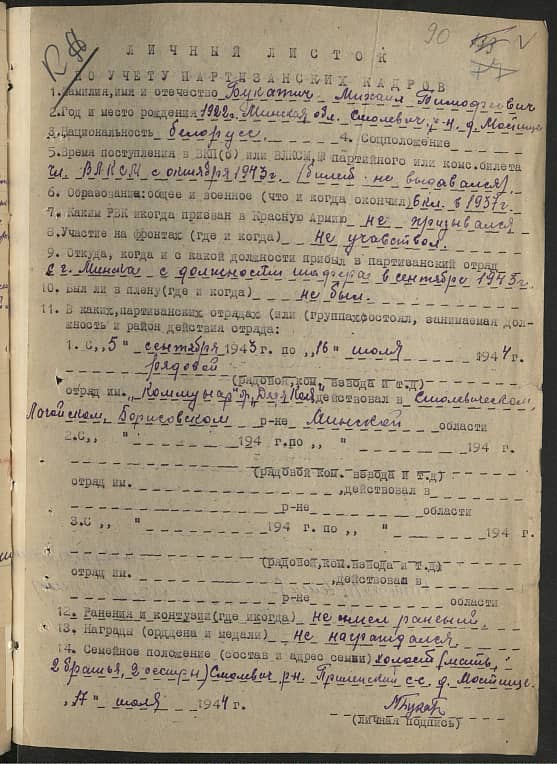 90
Л И Ч Н Ы Й Л И С Т О К
ПО УЧЕТУ ПАРТИЗАНСКИХ КАДРОВ
1. Фамилия, имя и отчество Букатич Михаил Тимофеевич
2. Год и место рождения 1922 г. Минская обл. Смолевич. р-н. д. Мостище
3. Национальность белорусс. 4. Соцположение
5. Время поступления в ВКП(б) или ВЛКСМ, № партийного или комс. билета
чл. ВЛКСМ с октября 1943 г. (билет не выдавался)
6. Образование: общее и военное (что и когда окончил) 6 кл. в 1937 г.
7. Каким РВК и когда призван в Красную Армию не призывался
8. Участие на фронтах (где и когда) Не учавствовал.
9. Откуда, когда и с какой должности прибыл в партизанский отряд
с г. Минска с должности шофера в сентябре 1943 г.
10. Был ли в плену (где и когда) не был.
11. В каких, партизанских отрядах (или (группах) состоял, занимаемая дол-
жность и район действия отряда:
1. С „ 5 " сентября 1943 г. по „ 16 " июля 1944 г.
рядовой
(рядовой, ком. взвода и т.д)
отряд им. „Коммунар" бр. „Дяди Коли" действовал в Смолевическом,
Логойском, Борисовском р-не Минской области
2. С „ " 194 г. по „ " 194 г.
(рядовой ком. взвода и т.д)
отряд им. , действовал в
р-не области
3. С „ " 194 г. по „ " 194 г.
(рядовой, ком. взвода и т.д)
отряд им. , действовал в
р-не области
12. Ранения и контузии (где и когда) не имел ранений.
13. Награды (орддена и медали) не награждался
14. Семейное положение (состав и адрес семьи) холост (мать,
2 братья, 2 сестры) Смолевич. р-н. с/с. д. Мостище.
„ 17 " июля 1944 г.
(личная подпись)